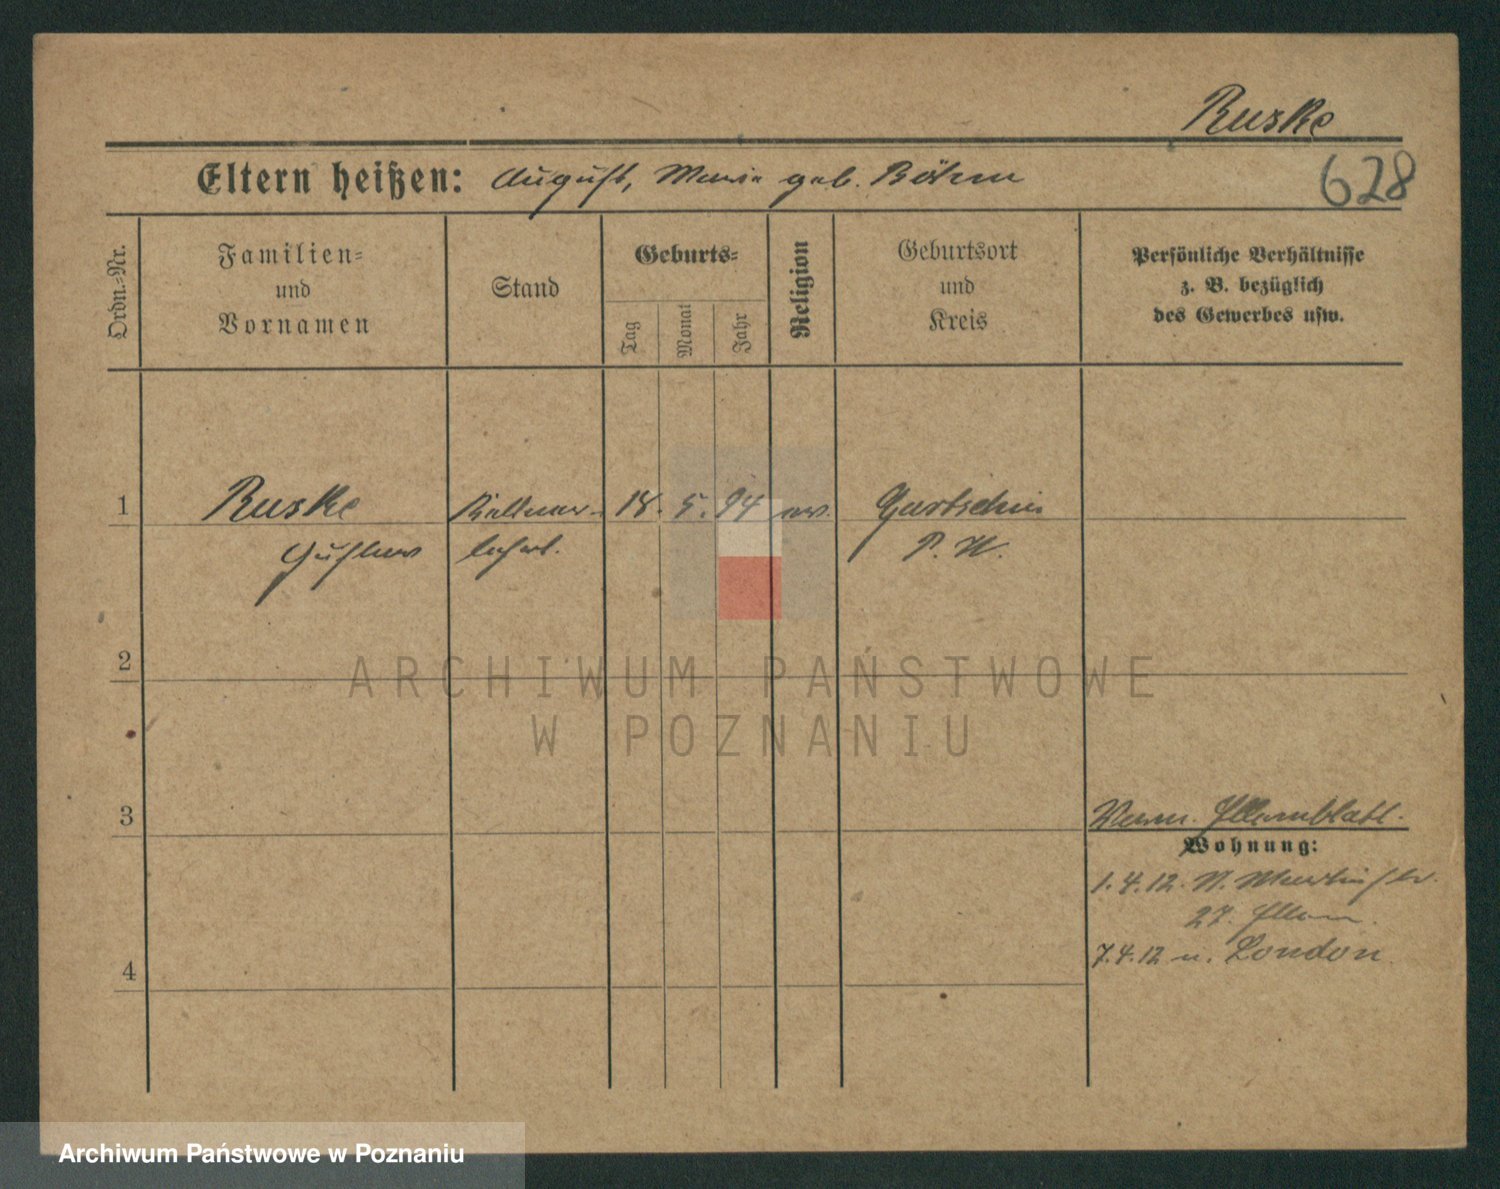 Ruske
628
Eltern heißen: August, Marie geb. Böhm
Ordn.=Nr.
Familien=
und
Vornamen
Stand
Geburts=
Tag
Monat
Jahr
Religion
Geburtsort
und
Kreis
Persönliche Verhältnisse
z. B. bezüglich
des Gewerbes usw.
1
Ruske
Kellner-
18. 5. 94
ev.
Gustav
lehrl.
P. W.
2
ARCHIWUM PAŃSTWOWE
W POZNANIU
3
Verm. Elternblatt.
Wohnung:
1. 4. 12. St. Martinstr.
27. Eltern.
7. 4. 12 n. London.
4
Archiwum Państwowe w Poznaniu